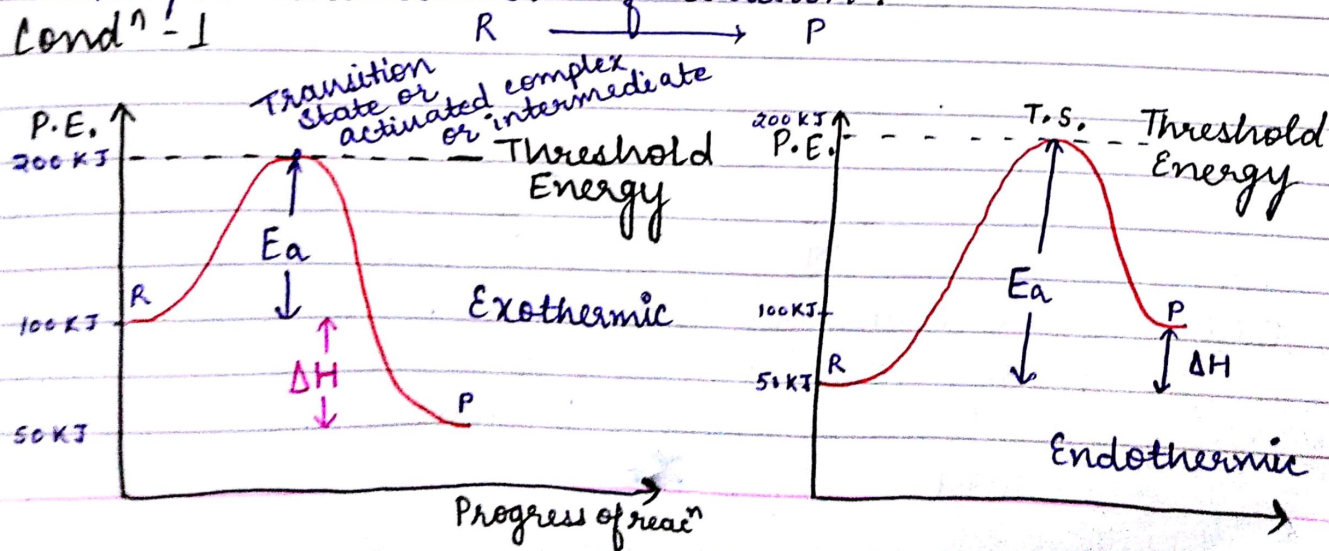 Condⁿ - 1
R → P
Transition
state or
activated complex
or intermediate
P.E.
200 KJ
Threshold
Energy
Ea
R
100 KJ
Exothermic
ΔH
P
50 KJ
Progress of reacⁿ
200 KJ
P.E.
T.S.
Threshold
Energy
Ea
100KJ
P
R
50 KJ
ΔH
Endothermic